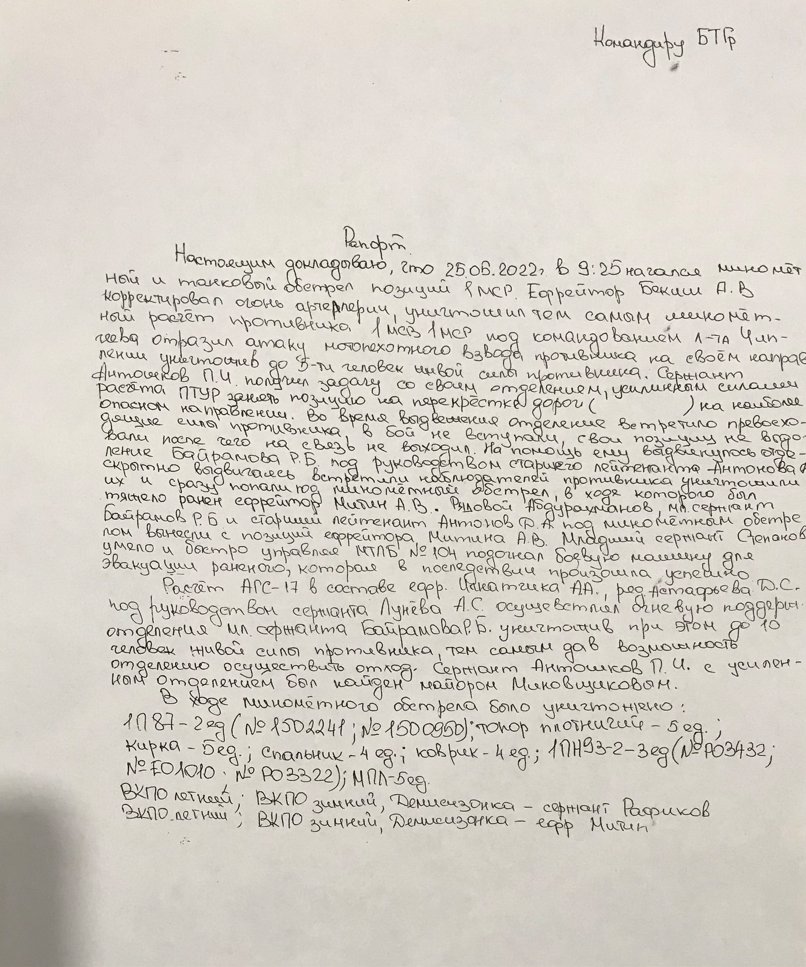 Командиру БТГр
Рапорт.
Настоящим докладываю, что 25.06.2022г. в 9:25 начался миномёт
ный и танковый обстрел позиций 1 МСР. Ефрейтор Бекиш А.В
корректировал огонь артерлерии, уничтошил тем самым миномёт-
ный расчёт противника 1 МСВ 1 МСР под командованием л-та Чип-
геева отразил атаку мотопехотного взвода противника на своём направ
лении уничтошив до 5-ти человек живой силы противника. Сержант
Антошков П.И. получил задачу со своим отделением, усилиным силами
расчёта ПТУР занять позицию на перекрёстке дорог ( ) на наиболее
опасном направлении. Во время выдвешения отделение встретило превосхо-
дящие силы противника, в бой не вступали, свои позицию не
вали после чего на связь не выходил. На помощь ему выдвинулось отде-
ление Байрамова Р.Б. под руководством старшего лейтенанта Антонова
скрытно выдвигаясь встретили наблюдателей противника уничтошили
их и сразу попали под миномётный обстрел, в ходе которого был
тяжело ранен ефрейтор Митин А.В. Рядовой Абдурахманов, мл. сержант
Байрамов Р.Б и старший лейтенант Антонов Д.А. под миномётным обстре
лом вынесли с позиций ефрейтора Митина А.В. Младший сержант Степанов
умело и быстро управляя МТЛБ №104 подогнал боевую машину для
эвакуации раненого, которая в последствии произошла успешно
Расчёт АГС-17 в составе ефр. АА., ряд Астафьева Д.С.
под руководством сержанта Лунёва А.С. осуществлял огневую поддерж.
отделения мл. сержанта Байрамова Р.Б. уничтошив при этом до 10
человек живой силы противника, тем самым дав возмошность
отделению осуществить отход. Сержант Антошков П.И. с усилен-
ным отделением был найден майором Миновщиковым.
В ходе миномётного обстрела было уничтожено:
1П87-2ед (№1502241; №1500950); топор плотничий - 5ед.;
кирка - 5ед.; спальник - 4 ед.; коврик - 4 ед.; 1ПН93-2-3ед (№РО3432;
№ЕО1010 · №РО3322); МПЛ-5ед.
ВКПО летний; ВКПО зимний, Демисизонка - сержант Рафиков
ВКПО летний; ВКПО зимний, Демисизонка - ефр Митин